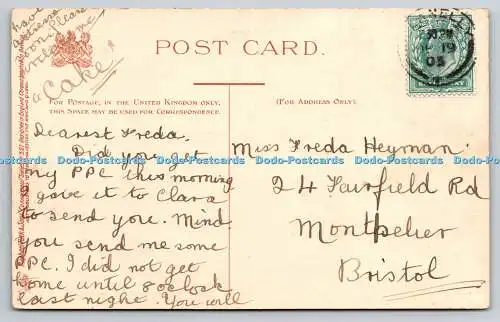 have
address
soon. Please
make me
a Cake!
POST CARD.
FOR POSTAGE, IN THE UNITED KINGDOM ONLY,
THIS SPACE MAY BE USED FOR CORRESPONDENCE.
(FOR ADDRESS ONLY).
Dearest Freda.
Did you get
my PPC this morning
I gave it to Clara
to send you. Mind
you send me some
PPC. I did not get
home until 8 oclock
last night. You will
Miss Freda Heyman.
24 Fairfield Rd
Montpelier
Bristol
19
03
Dodo-Postcards Dodo-Postcards Dodo-Postcards Dodo-Postcards Dodo-Postcards